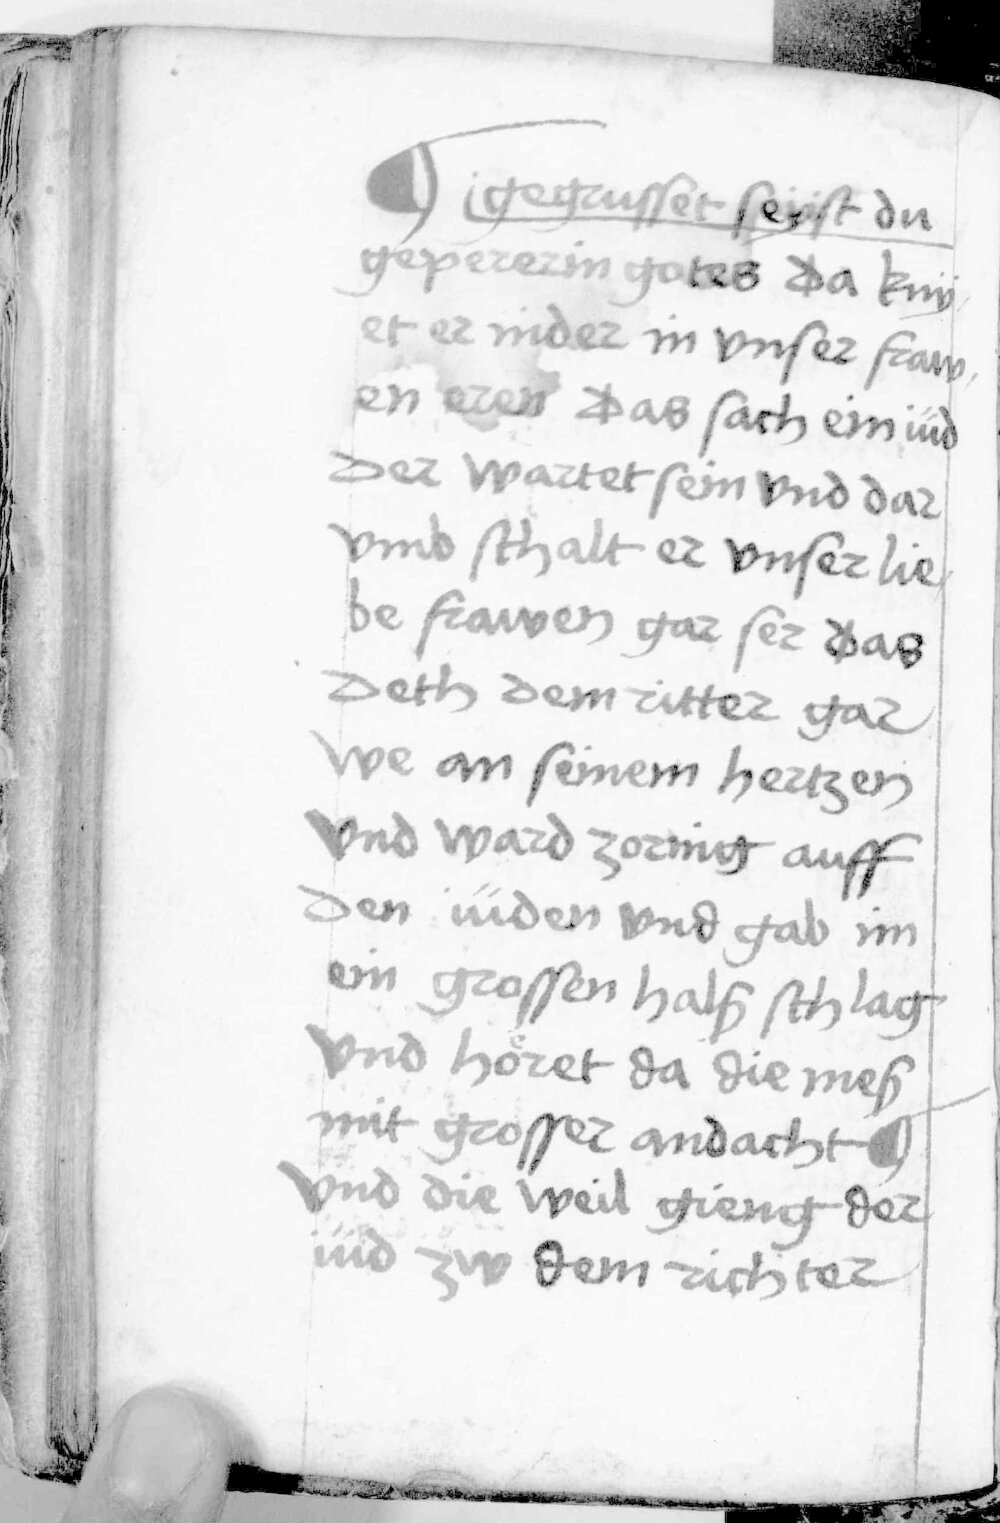 ¶ gegrusset seÿst du
gepererin gotes Da knÿ
et er nider in vnser fraw
en eren Das sach ein iüd
Der wartet sein vnd dar
vmb schalt er vnser lie
be frawen gar ser Das
Deth Dem ritter gar
we an seinem hertzen
vnd ward zornig auff
Den iüden vnd gab im
ein grossen halß schlag
vnd höret da die meß
mit grosser andacht ¶
vnd die weil gieng der
iüd zw dem richter